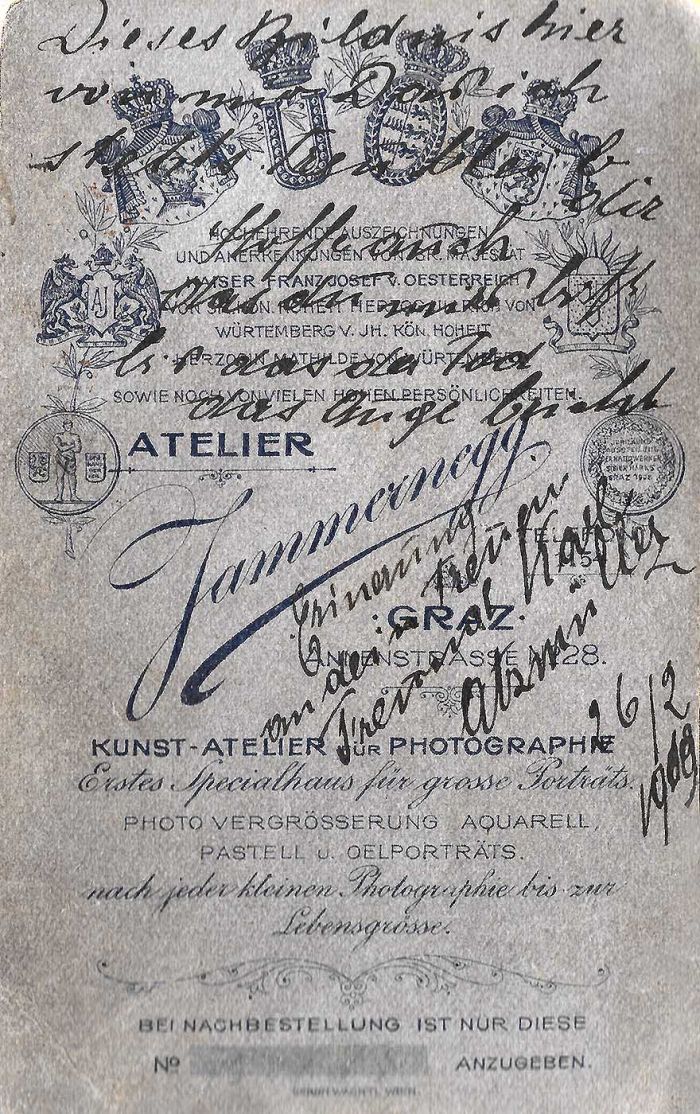 Dieses Bildnis hier
von mir Das ich
stehts treu bleib
dir
Hoffe auch
das du mir bist
bis das der Tod
das Auge bricht
U O
HOCHEHRENDE AUSZEICHNUNGEN
UND ANERKENNUNGEN VON SR. MAJESTÄT
KAISER FRANZ JOSEF V. OESTERREICH
VON SR. KÖN. HOHEIT HERZOG ULRICH VON
WÜRTEMBERG V. JH. KÖN. HOHEIT
HERZOGIN MATHILDE VON WÜRTEMBERG
SOWIE NOCH VON VIELEN HOHEN PERSÖNLICHKEITEN.
AJ
ATELIER
Jammernegg.
TELEFON
GRAZ
ANNENSTRASSE No 28.
Erinerung
an den treuen
Freund
Karl
26/2
KUNST-ATELIER FÜR PHOTOGRAPHIE
Erstes Specialhaus für grosse Porträts.
PHOTO VERGRÖSSERUNG AQUARELL,
PASTELL U. OELPORTRÄTS.
nach jeder kleinen Photographie bis zur
Lebensgrösse.
BEI NACHBESTELLUNG IST NUR DIESE
No ANZUGEBEN.